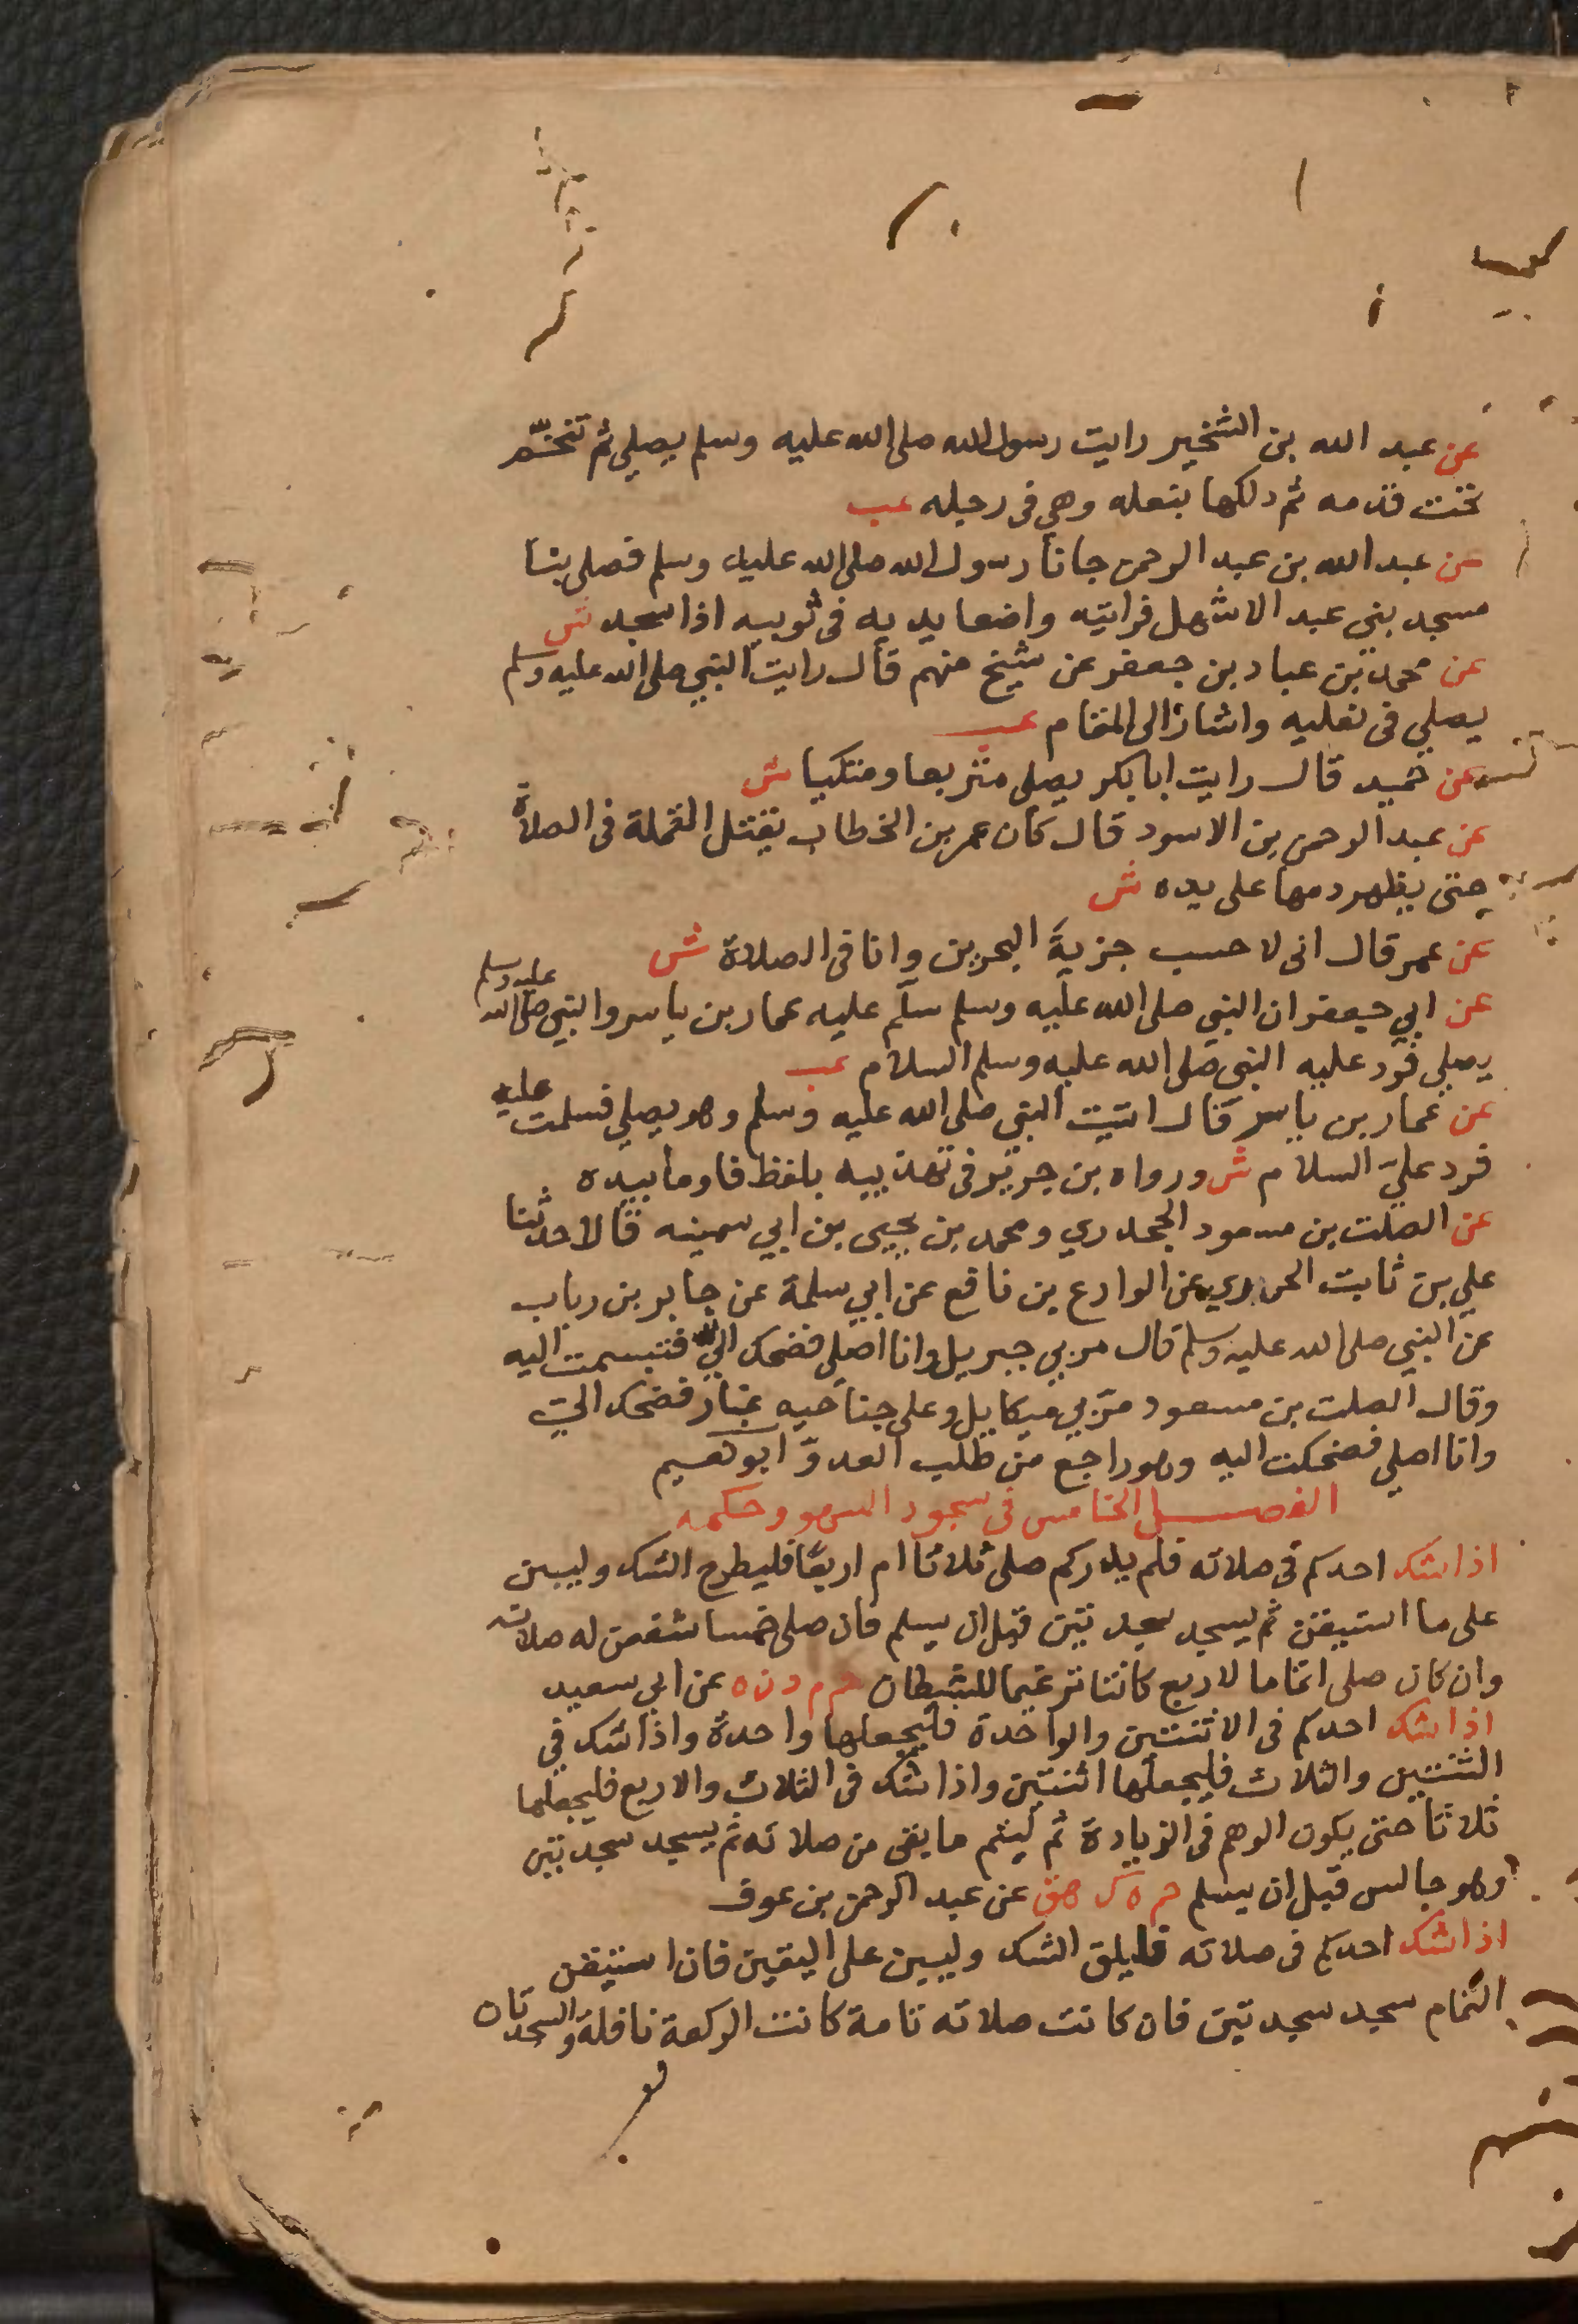 عن عبد الله بن الشخير رايت رسول الله صلى الله عليه وسلم يصلي ثم تنخّم
تحت قدمه ثم دلكها بنعله وهي في رجله عب
عن عبد الله بن عبد الرحمن جانا رسول الله صلى الله عليه وسلم فصلى بنا
مسجد بني عبد الاشهل فرايته واضعا يديه في ثوبيه اذا سجد ش
عن محمد بن عباد بن جعفر عن شيخ منهم قال رايت النبي صلى الله عليه وسلم
يصلي في نعليه واشار الى المقام عب
عن حميد قال رايت ابا بكر يصلي متربعا ومتكيا ش
عن عبد الرحمن بن الاسود قال كان عمر بن الخطاب يقتل القملة في الصلاة
حتى يظهر دمها على يده ش
عن عمر قال اني لا حسب جزية البحرين وانا في الصلاة ش
عن ابي جعفر ان النبي صلى الله عليه وسلم سلّم عليه عمار بن ياسر والنبي صلى الله عليه وسلم
يصلي فرد عليه النبي صلى الله عليه وسلم السلام عب
عن عمار بن ياسر قال اتيت النبي صلى الله عليه وسلم وهو يصلي فسلمت عليه
فرد عليّ السلام ش ورواه بن جرير في تهذيبه بلفظ فاوما بيده
عن الصلت بن مسعود الجحدري ومحمد بن يحيى بن ابي سمينه قالا حدثنا
علي بن ثابت الجزري عن الوازع بن نافع عن ابي سلمة عن جابر بن رياب
عن النبي صلى الله عليه وسلم قال مر بي جبريل وانا اصلي فضحك اليّ فتبسمت اليه
وقال الصلت بن مسعود مرّ بي ميكاييل وعلى جناحيه غبار فضحك اليّ
وانا اصلي فضحكت اليه وهو راجع من طلب العدوّ ابو نعيم
الفصل الخامس في سجود السهو وحكمه
اذا شك احدكم في صلاته فلم يدر كم صلى ثلاثا ام اربعًا فليطرح الشك وليبن
على ما استيقن ثم يسجد سجدتين قبل ان يسلم فان صلى خمسا شفعن له صلاته
وان كان صلى اتماما لاربع كانتا ترغيما للشيطان حم م د ن ه عن ابي سعيد
اذا شك احدكم في الاثنتين والواحدة فليجعلها واحدة واذا شك في
الثنتين والثلاث فليجعلها اثنتين واذا شك في الثلاث والاربع فليجعلها
ثلاثا حتى يكون الوهم في الزيادة ثم ليتم ما بقي من صلاته ثم يسجد سجدتين
وهو جالس قبل ان يسلم حم ه ك هق عن عبد الرحمن بن عوف
اذا شك احدكم في صلاته فليلق الشك وليبن على اليقين فان استيقن
التمام سجد سجدتين فان كانت صلاته تامة كانت الركعة نافلة والسجدتان